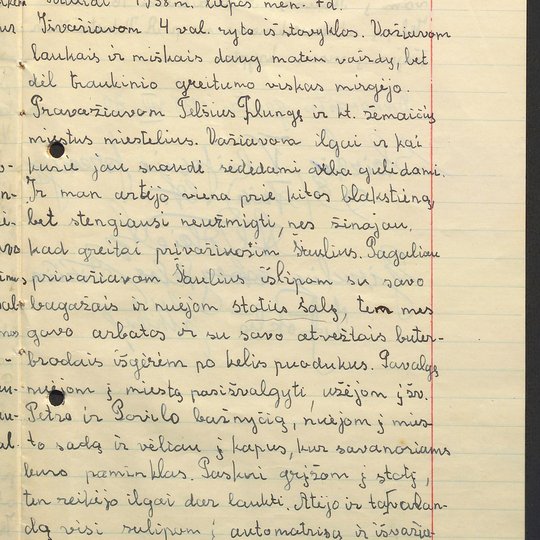 1938 m. liepos mėn. 4 d.
Išvažiavom 4 val. ryto iš stovyklos. Važiavom
laukais ir miškais daug matėm vaizdų, bet
dėl traukinio greitumo viskas mirgėjo.
Pravažiavom Telšius Plungę ir kt. žemaičių
miestus miestelius. Važiavom ilgai ir kai
kurie jau snaudė sėdėdami arba gulėdami.
Ir man artėjo viena prie kitos blakstieną,
bet stengiausi neužmigti, nes žinojau,
kad greitai privažiuosim Šiaulius. Pagaliau
privažiavom Šiaulius išlipom su savo
bagažais ir nuėjom stoties salę, ten mes
gavo arbatos ir su savo atvežtais buter-
brodais išgėrėm po kelis puodukus. Pavalgę
nuėjom į miestą pasišvalgyti, užėjom į šv.
Petro ir Povilo bažnyčią, nuėjom į mies-
to sodą ir vėliau į kapus, kur savanoriams
buvo paminklas. Paskui grįžom į stotį,
ten reikėjo ilgai dar laukti. Atėjo ir
dą visi sulipom į automatrisą ir išvažia-